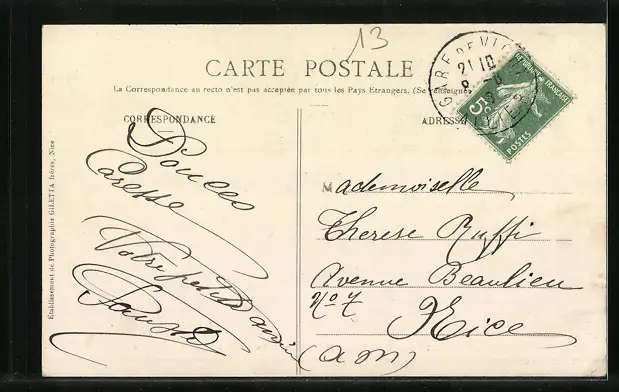 13
CARTE POSTALE
La Correspondance au recto n'est pas acceptée par tous les Pays Etrangers. (Se renseigner
CORRESPONDANCE
ADRESSE
Etablissement de Photographie GILETTA frères, Nice
Douces
Caresse
Votre petit
Mademoiselle
Therese Ruffi
Avenue Beaulieu
No 7
Nice
(a m)
REPUBLIQUE FRANÇAISE
5c
POSTES
GARE DE
21 10
8